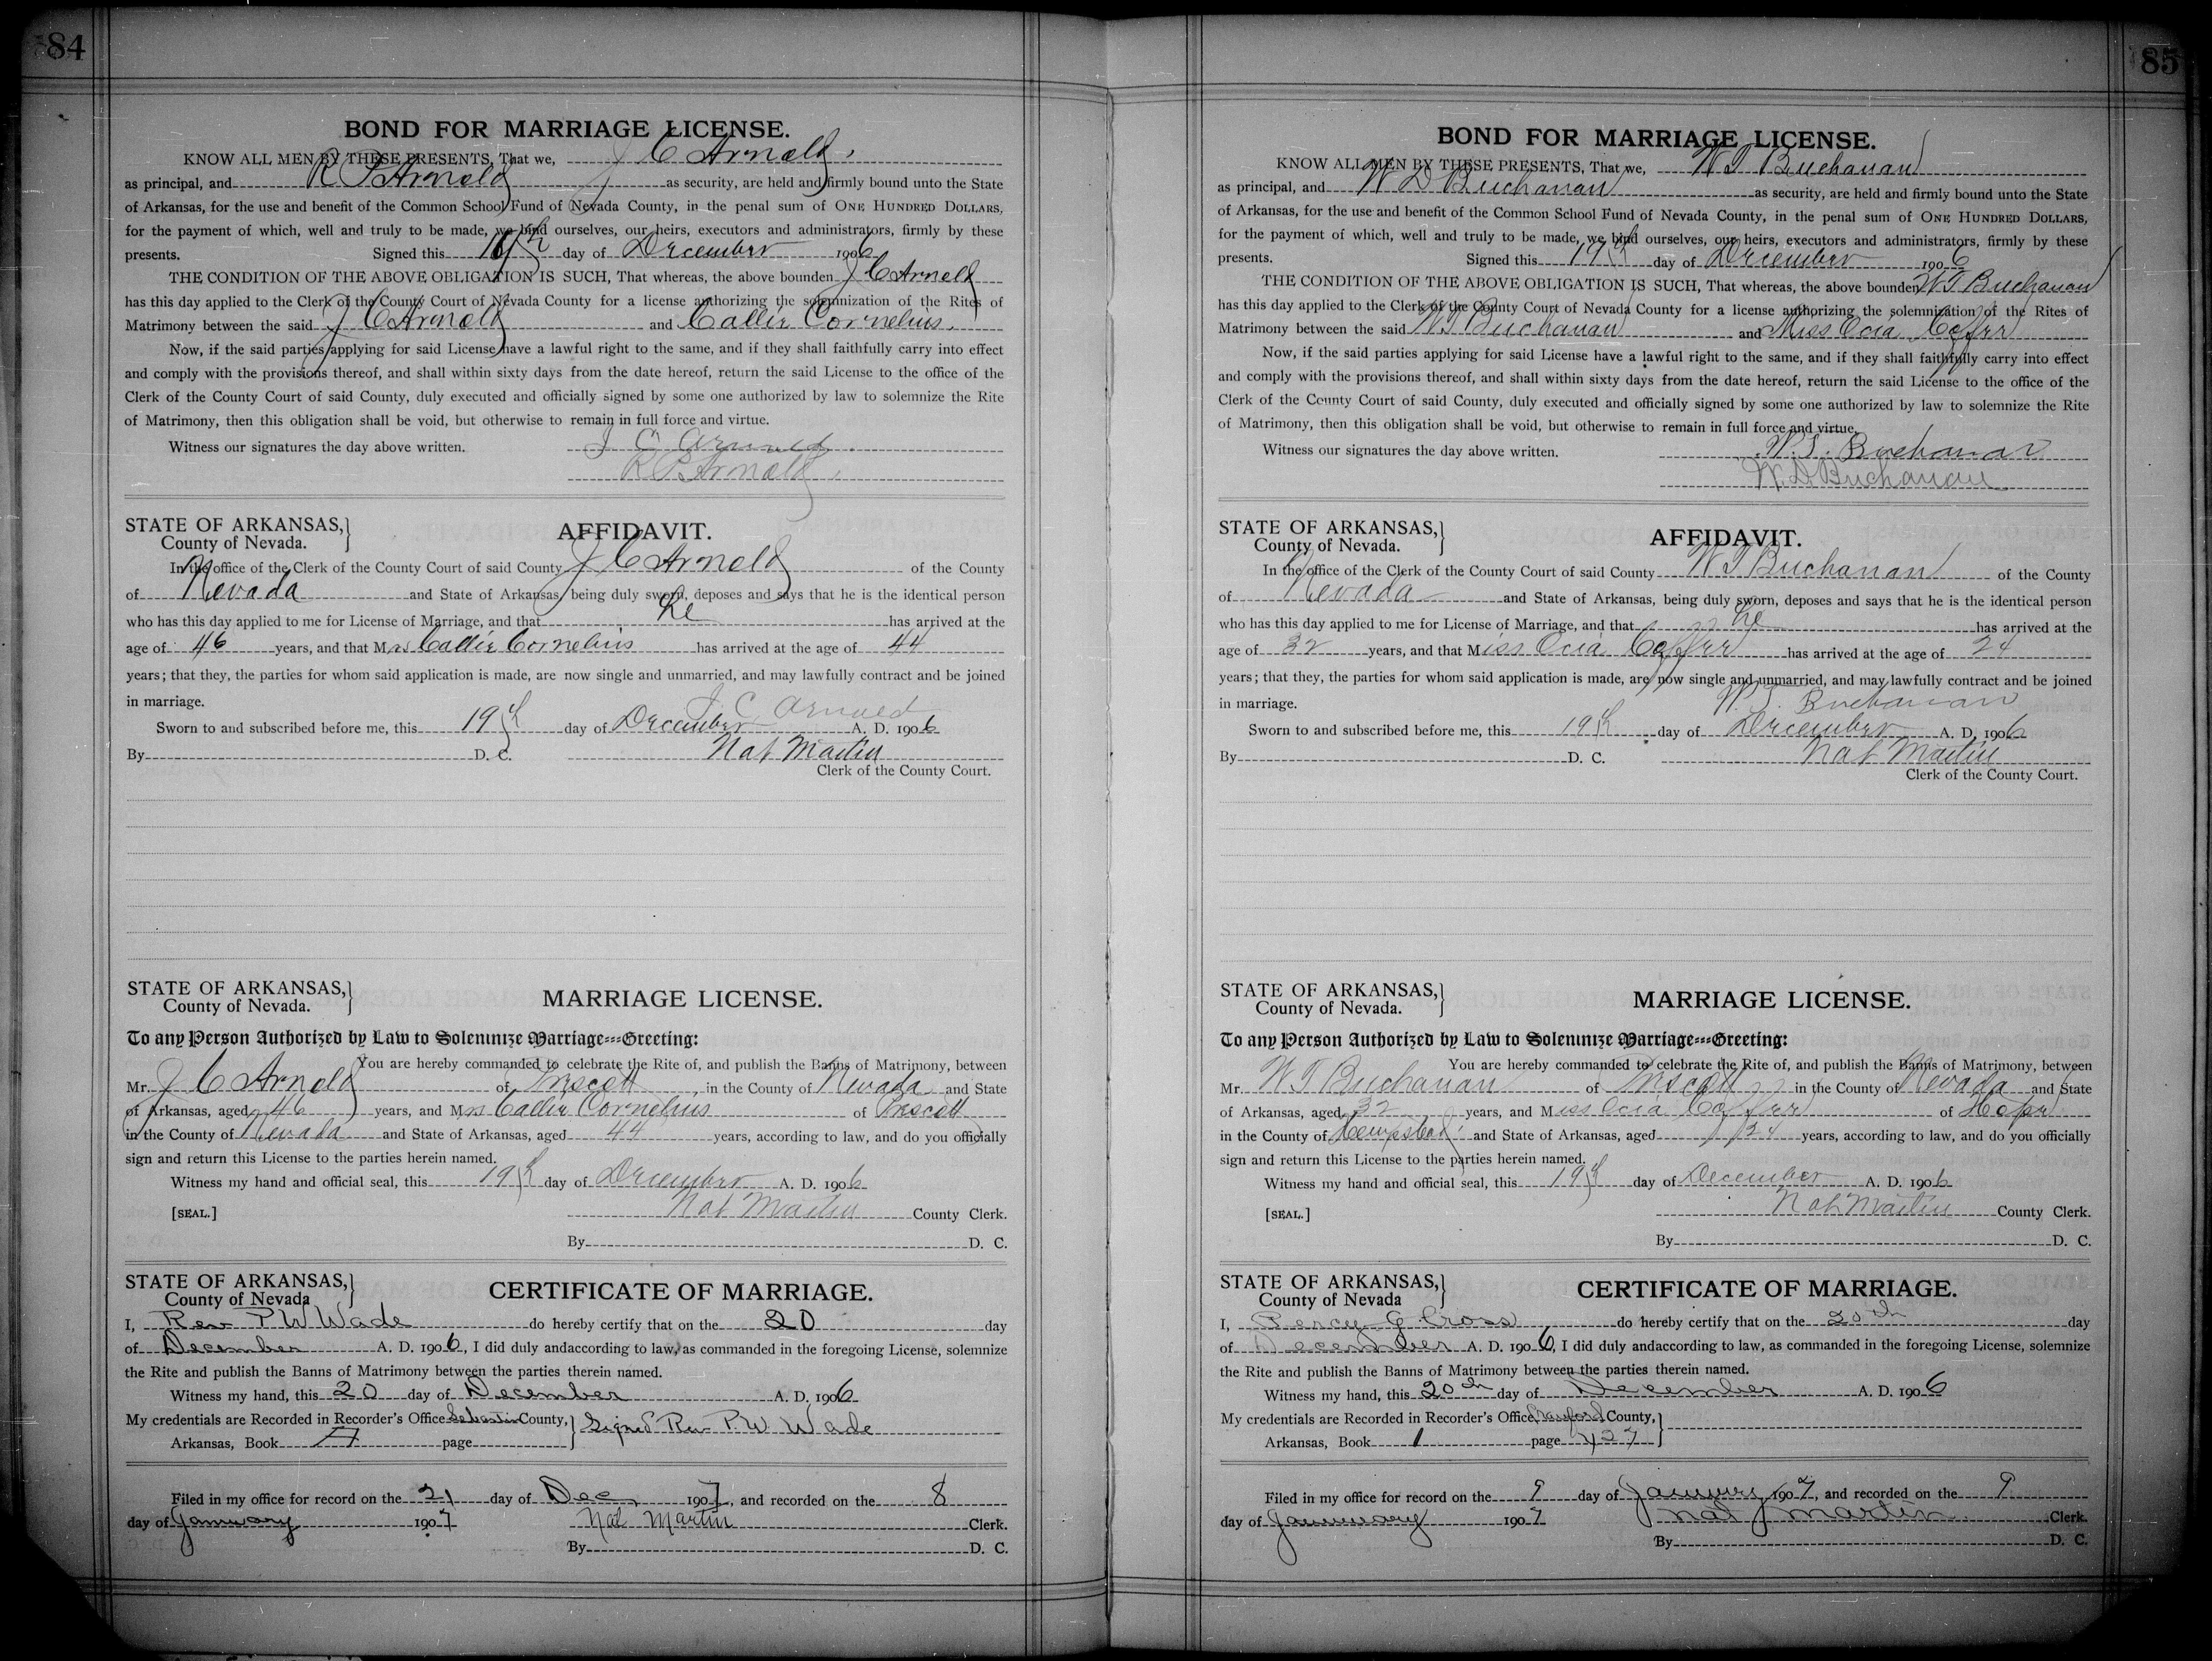 84
BOND FOR MARRIAGE LICENSE.
KNOW ALL MEN BY THESE PRESENTS, That we, J C Arnold,
as principal, and R P Arnold as security, are held and firmly bound unto the State
of Arkansas, for the use and benefit of the Common School Fund of Nevada County, in the penal sum of ONE HUNDRED DOLLARS,
for the payment of which, well and truly to be made, we bind ourselves, our heirs, executors and administrators, firmly by these
presents. Signed this day of December 1906
THE CONDITION OF THE ABOVE OBLIGATION IS SUCH, That whereas, the above bounden J C Arnold
has this day applied to the Clerk of the County Court of Nevada County for a license authorizing the solemnization of the Rites of
Matrimony between the said J C Arnold and Callie Cornelius.
Now, if the said parties applying for said License have a lawful right to the same, and if they shall faithfully carry into effect
and comply with the provisions thereof, and shall within sixty days from the date hereof, return the said License to the office of the
Clerk of the County Court of said County, duly executed and officially signed by some one authorized by law to solemnize the Rite
of Matrimony, then this obligation shall be void, but otherwise to remain in full force and virtue.
Witness our signatures the day above written. J C Arnold
R P Arnold
STATE OF ARKANSAS,
County of Nevada.
AFFIDAVIT.
In the office of the Clerk of the County Court of said County J C Arnold of the County
of Nevada and State of Arkansas, being duly sworn, deposes and says that he is the identical person
who has this day applied to me for License of Marriage, and that he has arrived at the
age of 46 years, and that Mrs Callie Cornelius has arrived at the age of 44
years; that they, the parties for whom said application is made, are now single and unmarried, and may lawfully contract and be joined
in marriage. J. C Arnold
Sworn to and subscribed before me, this 19th day of December A. D. 1906
By D. C. Nat Martin
Clerk of the County Court.
STATE OF ARKANSAS,
County of Nevada.
MARRIAGE LICENSE.
To any Person Authorized by Law to Solemnize Marriage---Greeting:
You are hereby commanded to celebrate the Rite of, and publish the Banns of Matrimony, between
Mr. J C Arnold of Prescott in the County of Nevada and State
of Arkansas, aged 46 years, and Mrs Callie Cornelius of Prescott
in the County of Nevada and State of Arkansas, aged 44 years, according to law, and do you officially
sign and return this License to the parties herein named.
Witness my hand and official seal, this 19th day of December A. D. 1906
[SEAL.] Nat Martin County Clerk.
By D. C.
STATE OF ARKANSAS,
County of Nevada
CERTIFICATE OF MARRIAGE.
I, Rev P W Wade do hereby certify that on the 20 day
of December A. D. 1906, I did duly andaccording to law, as commanded in the foregoing License, solemnize
the Rite and publish the Banns of Matrimony between the parties therein named.
Witness my hand, this 20 day of December A. D. 1906
My credentials are Recorded in Recorder's Office Sebastin County, Signed Rev P. W Wade
Arkansas, Book page
Filed in my office for record on the 21 day of Dec, 1907, and recorded on the 8
day of January 1907 Nat Martin Clerk.
By D. C.
85
BOND FOR MARRIAGE LICENSE.
KNOW ALL MEN BY THESE PRESENTS, That we, W T Buchanan
as principal, and W D Buchanan as security, are held and firmly bound unto the State
of Arkansas, for the use and benefit of the Common School Fund of Nevada County, in the penal sum of ONE HUNDRED DOLLARS,
for the payment of which, well and truly to be made, we bind ourselves, our heirs, executors and administrators, firmly by these
presents. Signed this 19th day of December 1906
THE CONDITION OF THE ABOVE OBLIGATION IS SUCH, That whereas, the above bounden W T Buchanan
has this day applied to the Clerk of the County Court of Nevada County for a license authorizing the solemnization of the Rites of
Matrimony between the said W T Buchanan and Miss Ocia
Now, if the said parties applying for said License have a lawful right to the same, and if they shall faithfully carry into effect
and comply with the provisions thereof, and shall within sixty days from the date hereof, return the said License to the office of the
Clerk of the County Court of said County, duly executed and officially signed by some one authorized by law to solemnize the Rite
of Matrimony, then this obligation shall be void, but otherwise to remain in full force and virtue.
Witness our signatures the day above written. W. T. Buchanan
W. D. Buchanan
STATE OF ARKANSAS,
County of Nevada.
AFFIDAVIT.
In the office of the Clerk of the County Court of said County W T Buchanan of the County
of Nevada and State of Arkansas, being duly sworn, deposes and says that he is the identical person
who has this day applied to me for License of Marriage, and that he has arrived at the
age of 32 years, and that Miss Ocia has arrived at the age of 24
years; that they, the parties for whom said application is made, are now single and unmarried, and may lawfully contract and be joined
in marriage. W. T. Buchanan
Sworn to and subscribed before me, this 19th day of December A. D. 1906
By D. C. Nat Martin
Clerk of the County Court.
STATE OF ARKANSAS,
County of Nevada.
MARRIAGE LICENSE.
To any Person Authorized by Law to Solemnize Marriage---Greeting:
You are hereby commanded to celebrate the Rite of, and publish the Banns of Matrimony, between
Mr. W T Buchanan of Prescott in the County of Nevada and State
of Arkansas, aged 32 years, and Miss Ocia of Hope
in the County of Hempstead and State of Arkansas, aged 24 years, according to law, and do you officially
sign and return this License to the parties herein named.
Witness my hand and official seal, this 19th day of December A. D. 1906
[SEAL.] Nat Martin County Clerk.
By D. C.
STATE OF ARKANSAS,
County of Nevada
CERTIFICATE OF MARRIAGE.
I, Percy G Cross do hereby certify that on the 20th day
of December A. D. 1906, I did duly andaccording to law, as commanded in the foregoing License, solemnize
the Rite and publish the Banns of Matrimony between the parties therein named.
Witness my hand, this 20th day of December A. D. 1906
My credentials are Recorded in Recorder's Office, County,
Arkansas, Book 1 page 427
Filed in my office for record on the 9 day of January 1907, and recorded on the 9
day of January 1907 Nat Martin Clerk
By D. C.